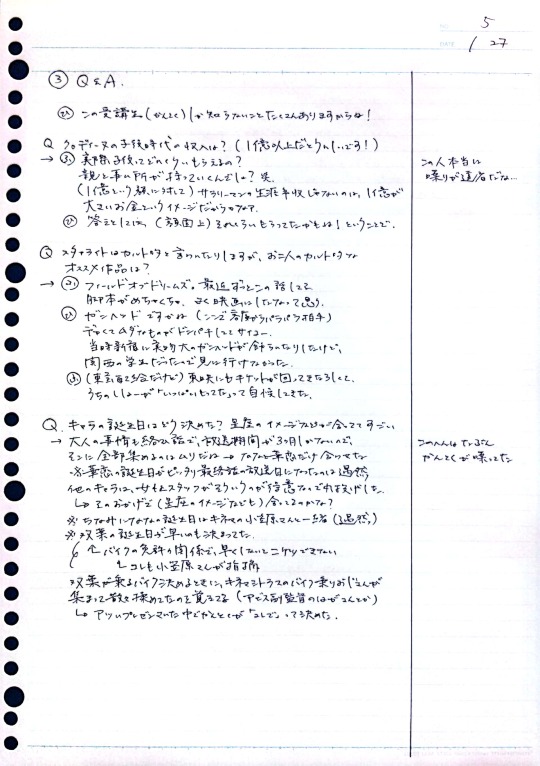 NO. 5
DATE 1/27
③ Q&A.
ひ この受講生(かんとく)しか知らないことたくさんありますからね!
Q クロディーヌの子役時代の収入は?(1億以上だとうれしいです!)
→ ふ 実際子役ってどれくらいもらえるの?
親と事ム所が持っていくんでしょ?笑
(1億という額に対して)サラリーマンの生涯年収じゃないのは、1億が
大きいお金というイメージだからかなァ。
ひ 答えとしては、(額面上)それくらいもらってたかもね!ということで。
この人本当に
喋りが達者だな…
Q スタァライトはカルト的と言われたりしますが、お二人のカルト的な
オススメ作品は?
→ ふ フィールドオブドリームズ。最近ずっとこの話してる
脚本がめちゃくちゃ。よく映画にしたなって思う。
ひ ガンヘッドですかね(ここで客席からパラパラ拍手)
でっかくてムダなものがドンパチしててサイコー。
当時新宿に実物大のガンヘッドが飾られたりしたけど、
関西の学生だったので見に行けなかった。
ふ (東宝配給だけど)東映にもチケットが回ってきたらしくて、
うちのししょーが「いっぱいもってた」って自慢してきた。
Q. キャラの誕生日はどう決めた?星座のイメージなどが合っててすごい
→ 大人の事情も絡む話で、放送期間が3ヶ月しかないので、
そこに全部集めるのはムリだね→なのでまあ華恋だけ合わせた
※華恋の誕生日がピッタリ最終話の放送日になったのは偶然
他のキャラは、女性スタッフがそういうのが得意なのでお任せした。
↳そのおかげで(星座のイメージなども)合ってるのかな?
※ちなみにななの誕生日はキネマの小笠原さんと一緒(偶然)
※双葉の誕生日が早いのも決まってた。
↑バイクの免許の関係で、早くしないとニケツできない
↳コレも小笠原さんが指摘
双葉が乗るバイク決めるときに、キネマシトラスのバイク乗りおじさんが
集まって散々揉めてたのを覚えてる
↳アツいプレゼンをしていた中でかんとくが「コレで」って決めた。
この人はたぶん
かんとくが喋ってた